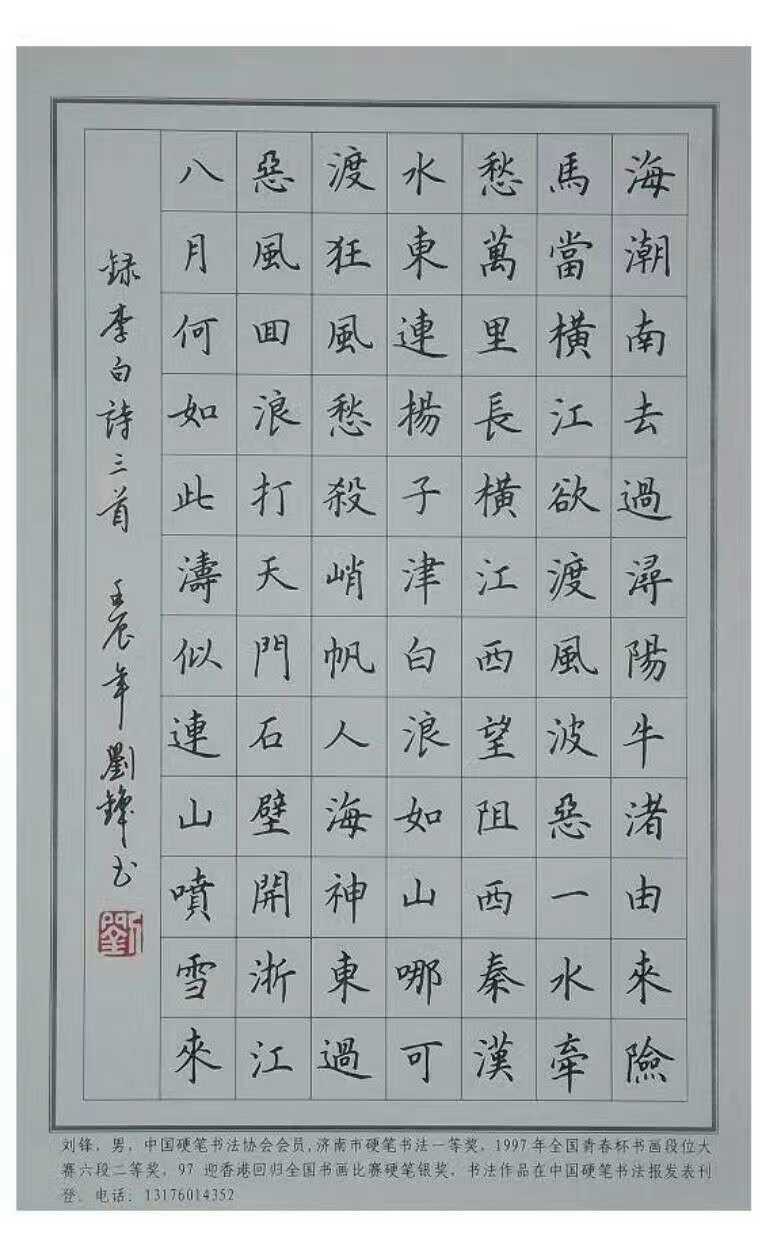 海潮南去過潯陽牛渚由來險
馬當橫江欲渡風波惡一水牽
愁萬里長橫江西望阻西秦漢
水東連楊子津白浪如山哪可
渡狂風愁殺峭帆人海神東過
惡風回浪打天門石壁開浙江
八月何如此濤似連山噴雪來
録李白詩三首 壬辰年 劉鋒书
劉
刘锋，男，中国硬笔书法协会会员，济南市硬笔书法一等奖，1997年全国青春杯书画段位大
赛六段二等奖，97 迎香港回归全国书画比赛硬笔银奖，书法作品在中国硬笔书法报发表刊
登，电话：13176014352